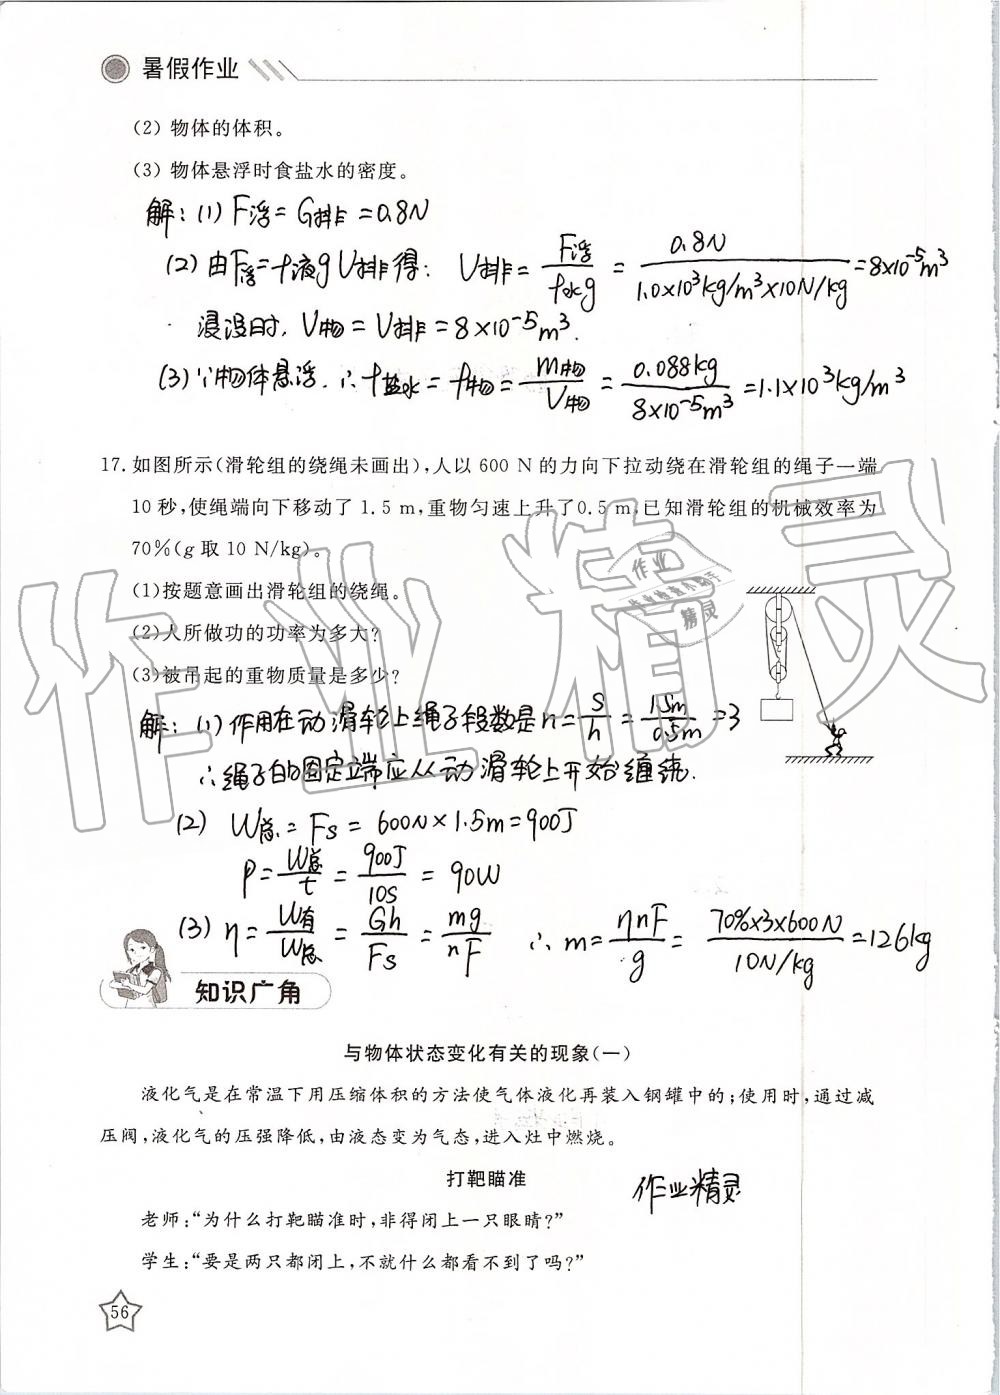 暑假作业
(2) 物体的体积。
(3) 物体悬浮时食盐水的密度。
解: (1) F浮 = G排 = 0.8N
(2) 由F浮 = ρ液gV排得: V排 = F浮/ρ水g = 0.8N/1.0×10³kg/m³×10N/kg = 8×10⁻⁵m³
浸没时, V物 = V排 = 8×10⁻⁵m³.
(3) ∵物体悬浮. ∴ρ盐水 = ρ物 = m物/V物 = 0.088kg/8×10⁻⁵m³ = 1.1×10³kg/m³
17. 如图所示(滑轮组的绕绳未画出),人以 600 N 的力向下拉动绕在滑轮组的绳子一端
10 秒,使绳端向下移动了 1.5 m,重物匀速上升了0.5 m,已知滑轮组的机械效率为
70%(g 取 10 N/kg)。
(1)按题意画出滑轮组的绕绳。
(2)人所做功的功率为多大?
(3)被吊起的重物质量是多少?
解: (1) 作用在动滑轮上绳子段数是 n = s/h = 1.5m/0.5m = 3
∴绳子的固定端应从动滑轮上开始缠绕.
(2) W总 = Fs = 600N×1.5m = 900J
P = W总/t = 900J/10s = 90W
(3) η = W有/W总 = Gh/Fs = mg/nF ∴ m = ηnF/g = 70%×3×600N/10N/kg = 126kg
知识广角
与物体状态变化有关的现象(一)
液化气是在常温下用压缩体积的方法使气体液化再装入钢罐中的;使用时,通过减
压阀,液化气的压强降低,由液态变为气态,进入灶中燃烧。
打靶瞄准
作业精灵
老师:“为什么打靶瞄准时,非得闭上一只眼睛?”
学生:“要是两只都闭上,不就什么都看不到了吗?”
56
作业精灵
作业
精灵